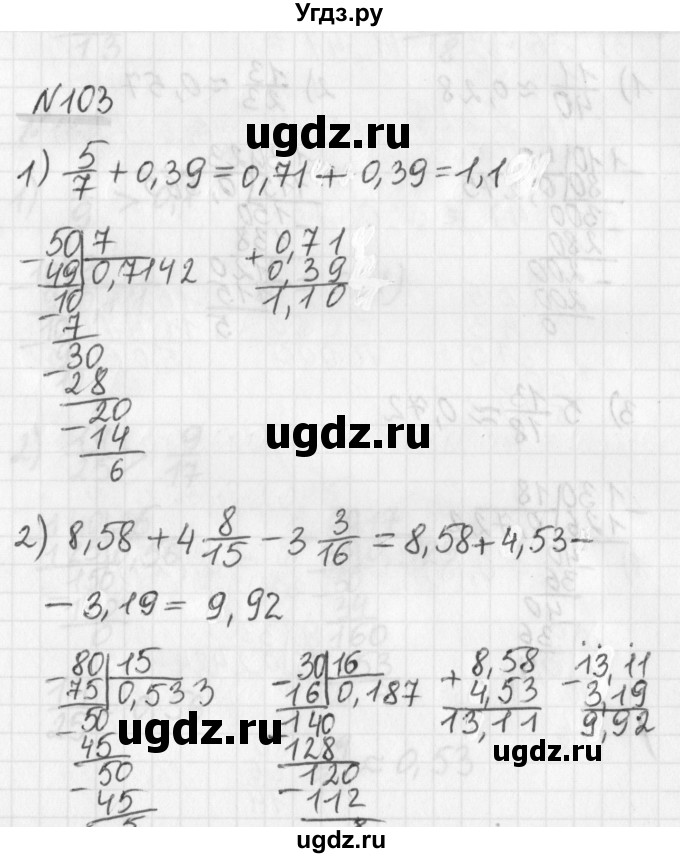 Угдз.ру
N103
ugdz.ru
1) 5/7 + 0,39 = 0,71 + 0,39 = 1,1
50 | 7
- 49 | 0,7142
- 10
7
- 30
28
- 20
14
6
+ 0,71
0,39
1,10
ugdz.ru
2) 8,58 + 4 8/15 - 3 3/16 = 8,58 + 4,53 -
- 3,19 = 9,92
- 80 | 15
75 | 0,533
- 50
45
50
- 45
5
- 30 | 16
16 | 0,187
140
128
120
- 112
+ 8,58
4,53
13,11
- 13,11
3,19
9,92
ugdz.ru
ugdz.ru
ugdz.ru